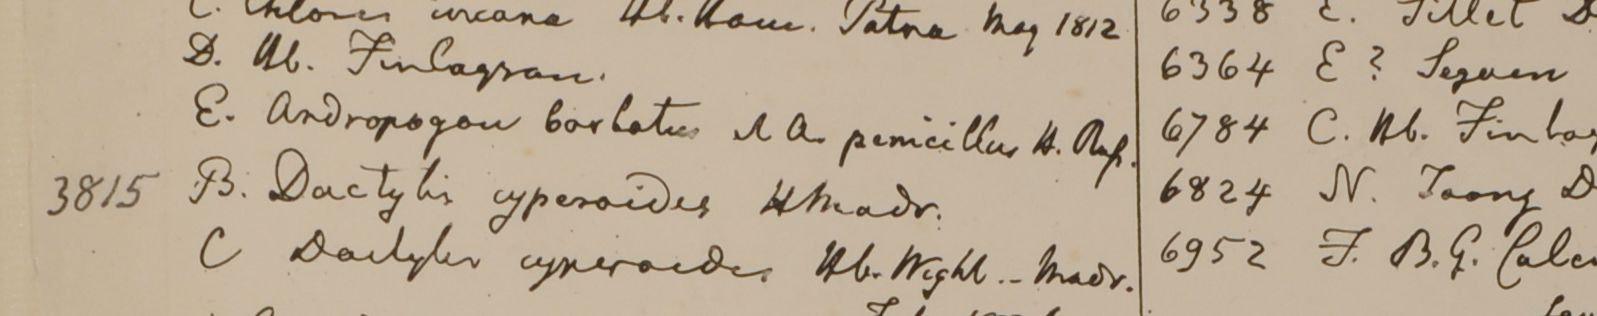 C. Chloris incana Hb. Ham. Patna May 1812
D. Hb. Finlayson.
E. Andropogon barbatus et A. penicillus H. Rup.
3815 B. Dactylis cyperoides H Madr.
C Dactylis cyperoides Hb. Wight -- Madr.
6338 E. Tillet D
6364 E? Segaen
6784 C. Hb. Finlay
6824 N. Taong D
6952 F. B. G. Calc